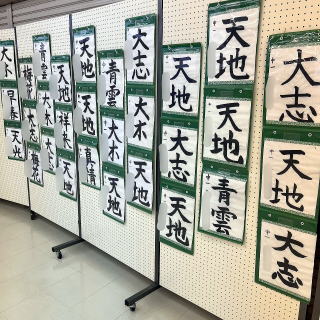 大志
天地
大志
天地
天地
青雲
天地
大志
天地
大志
大木
天地
青雲
大木
天地
天地
天地
天地
天地
青雲
大木
梅花
大志
梅花
大木
早春